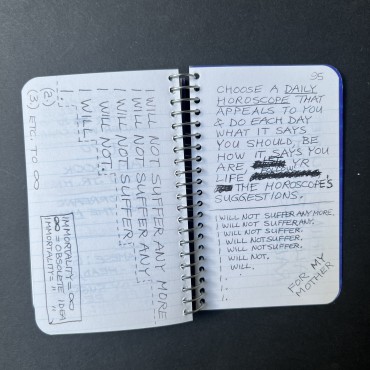 I WILL NOT SUFFER ANY MORE
I WILL NOT SUFFER ANY.
I WILL NOT SUFFER.
I WILL NOT.
I WILL.
I.
(2)
(3) ETC. TO ∞
IMMORTALITY = ∞
∞ = OBSOLETE IDEA
IMMORTALITY = " "
95
CHOOSE A DAILY
HOROSCOPE THAT
APPEALS TO YOU
& DO EACH DAY
WHAT IT SAYS
YOU SHOULD, BE
HOW IT SAYS YOU
ARE. LET YR
LIFE
THE HOROSCOPE'S
SUGGESTIONS.
I WILL NOT SUFFER ANY MORE.
I WILL NOT SUFFER ANY.
I WILL NOT SUFFER.
I WILL NOT SUFFER.
I WILL NOT SUFFER.
I WILL NOT.
I WILL.
I.
I.
I.
FOR MY
MOTHER